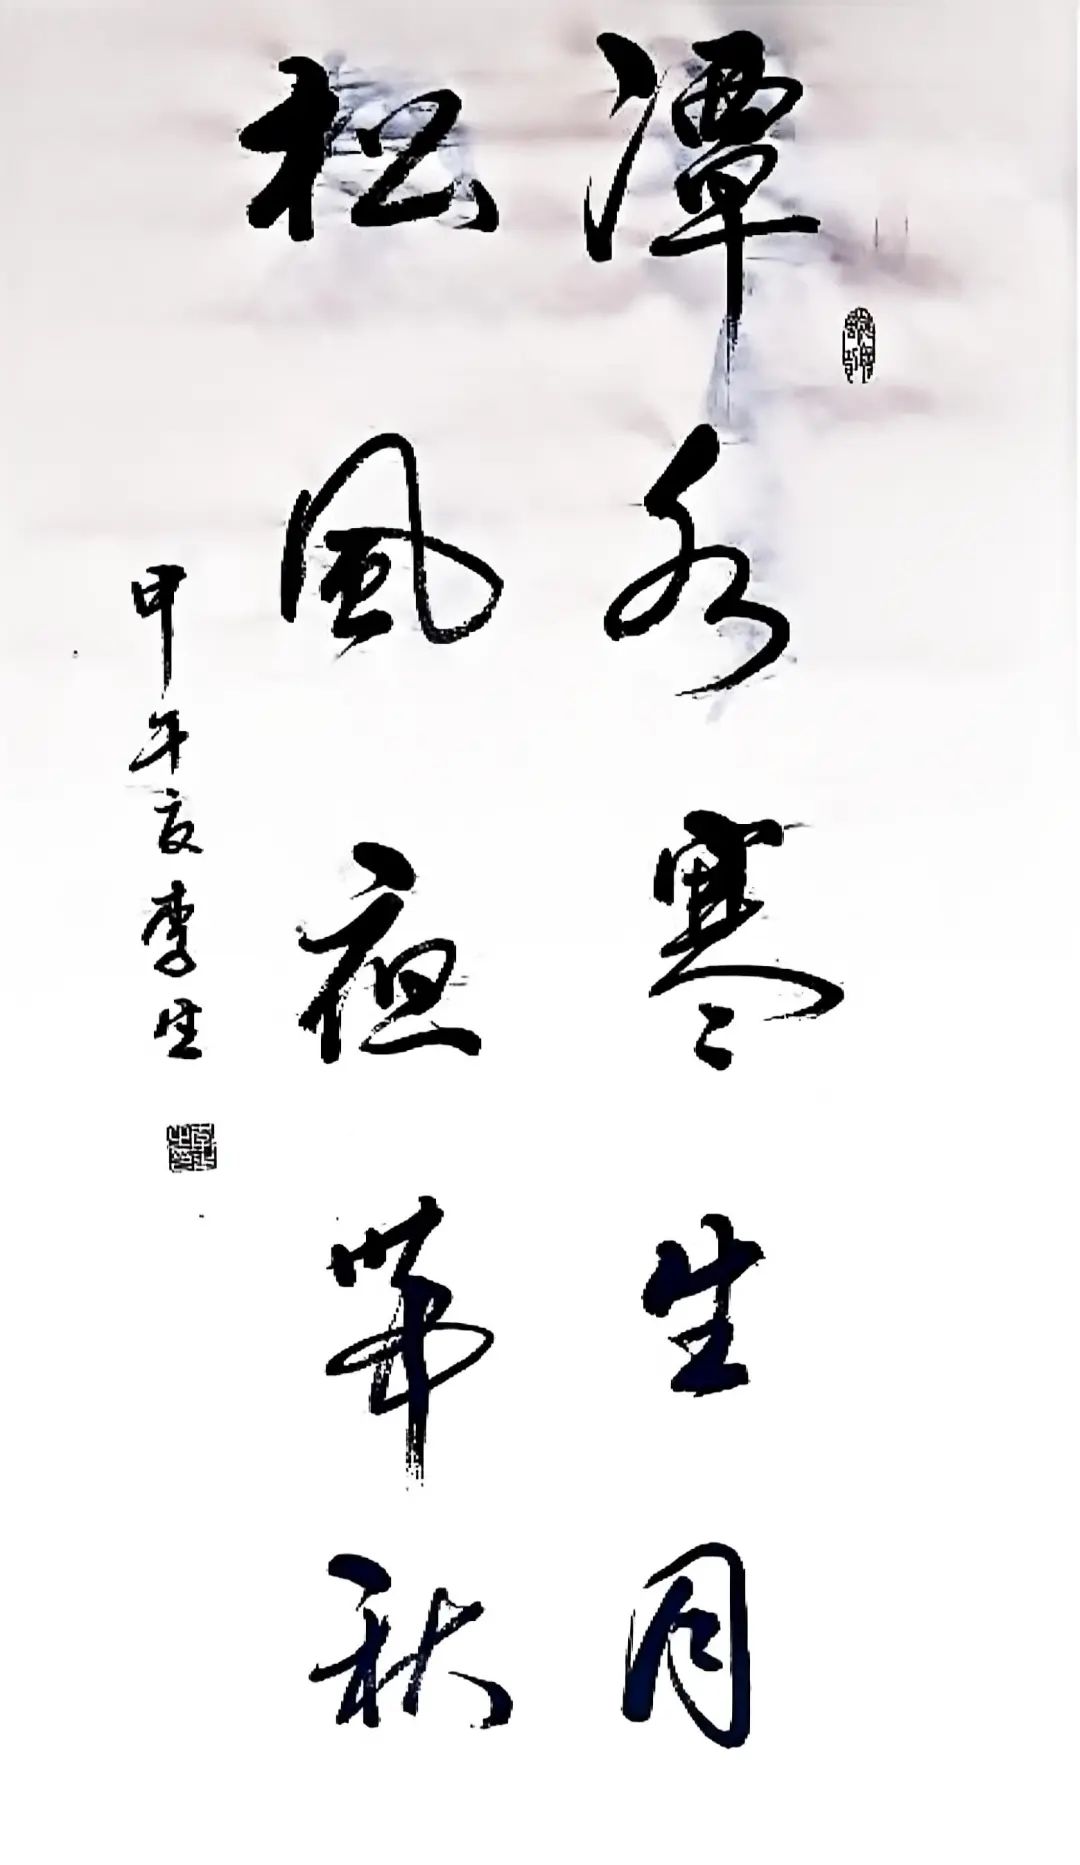 潭水寒生月
松風夜帶秋
甲午夏李生